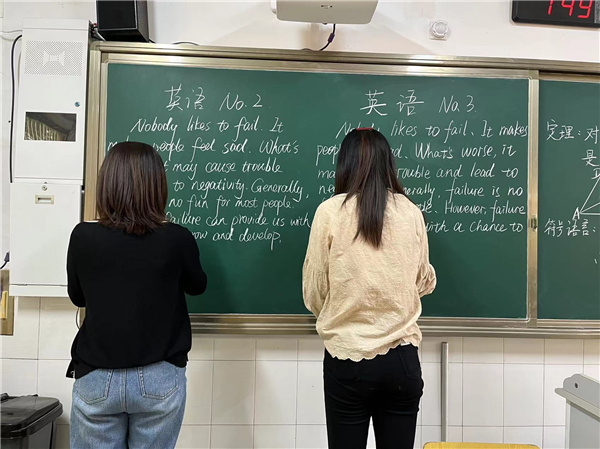 英语 No. 2
Nobody likes to fail. It
people feel sad. What's
may cause trouble
to negativity. Generally,
no fun for most people
Failure can provide us with
and develop.
英语 No. 3
likes to fail. It makes
What's worse, it
trouble and lead to
failure is no
However, failure
with a chance to
定理: 对
是
A
符号语言: